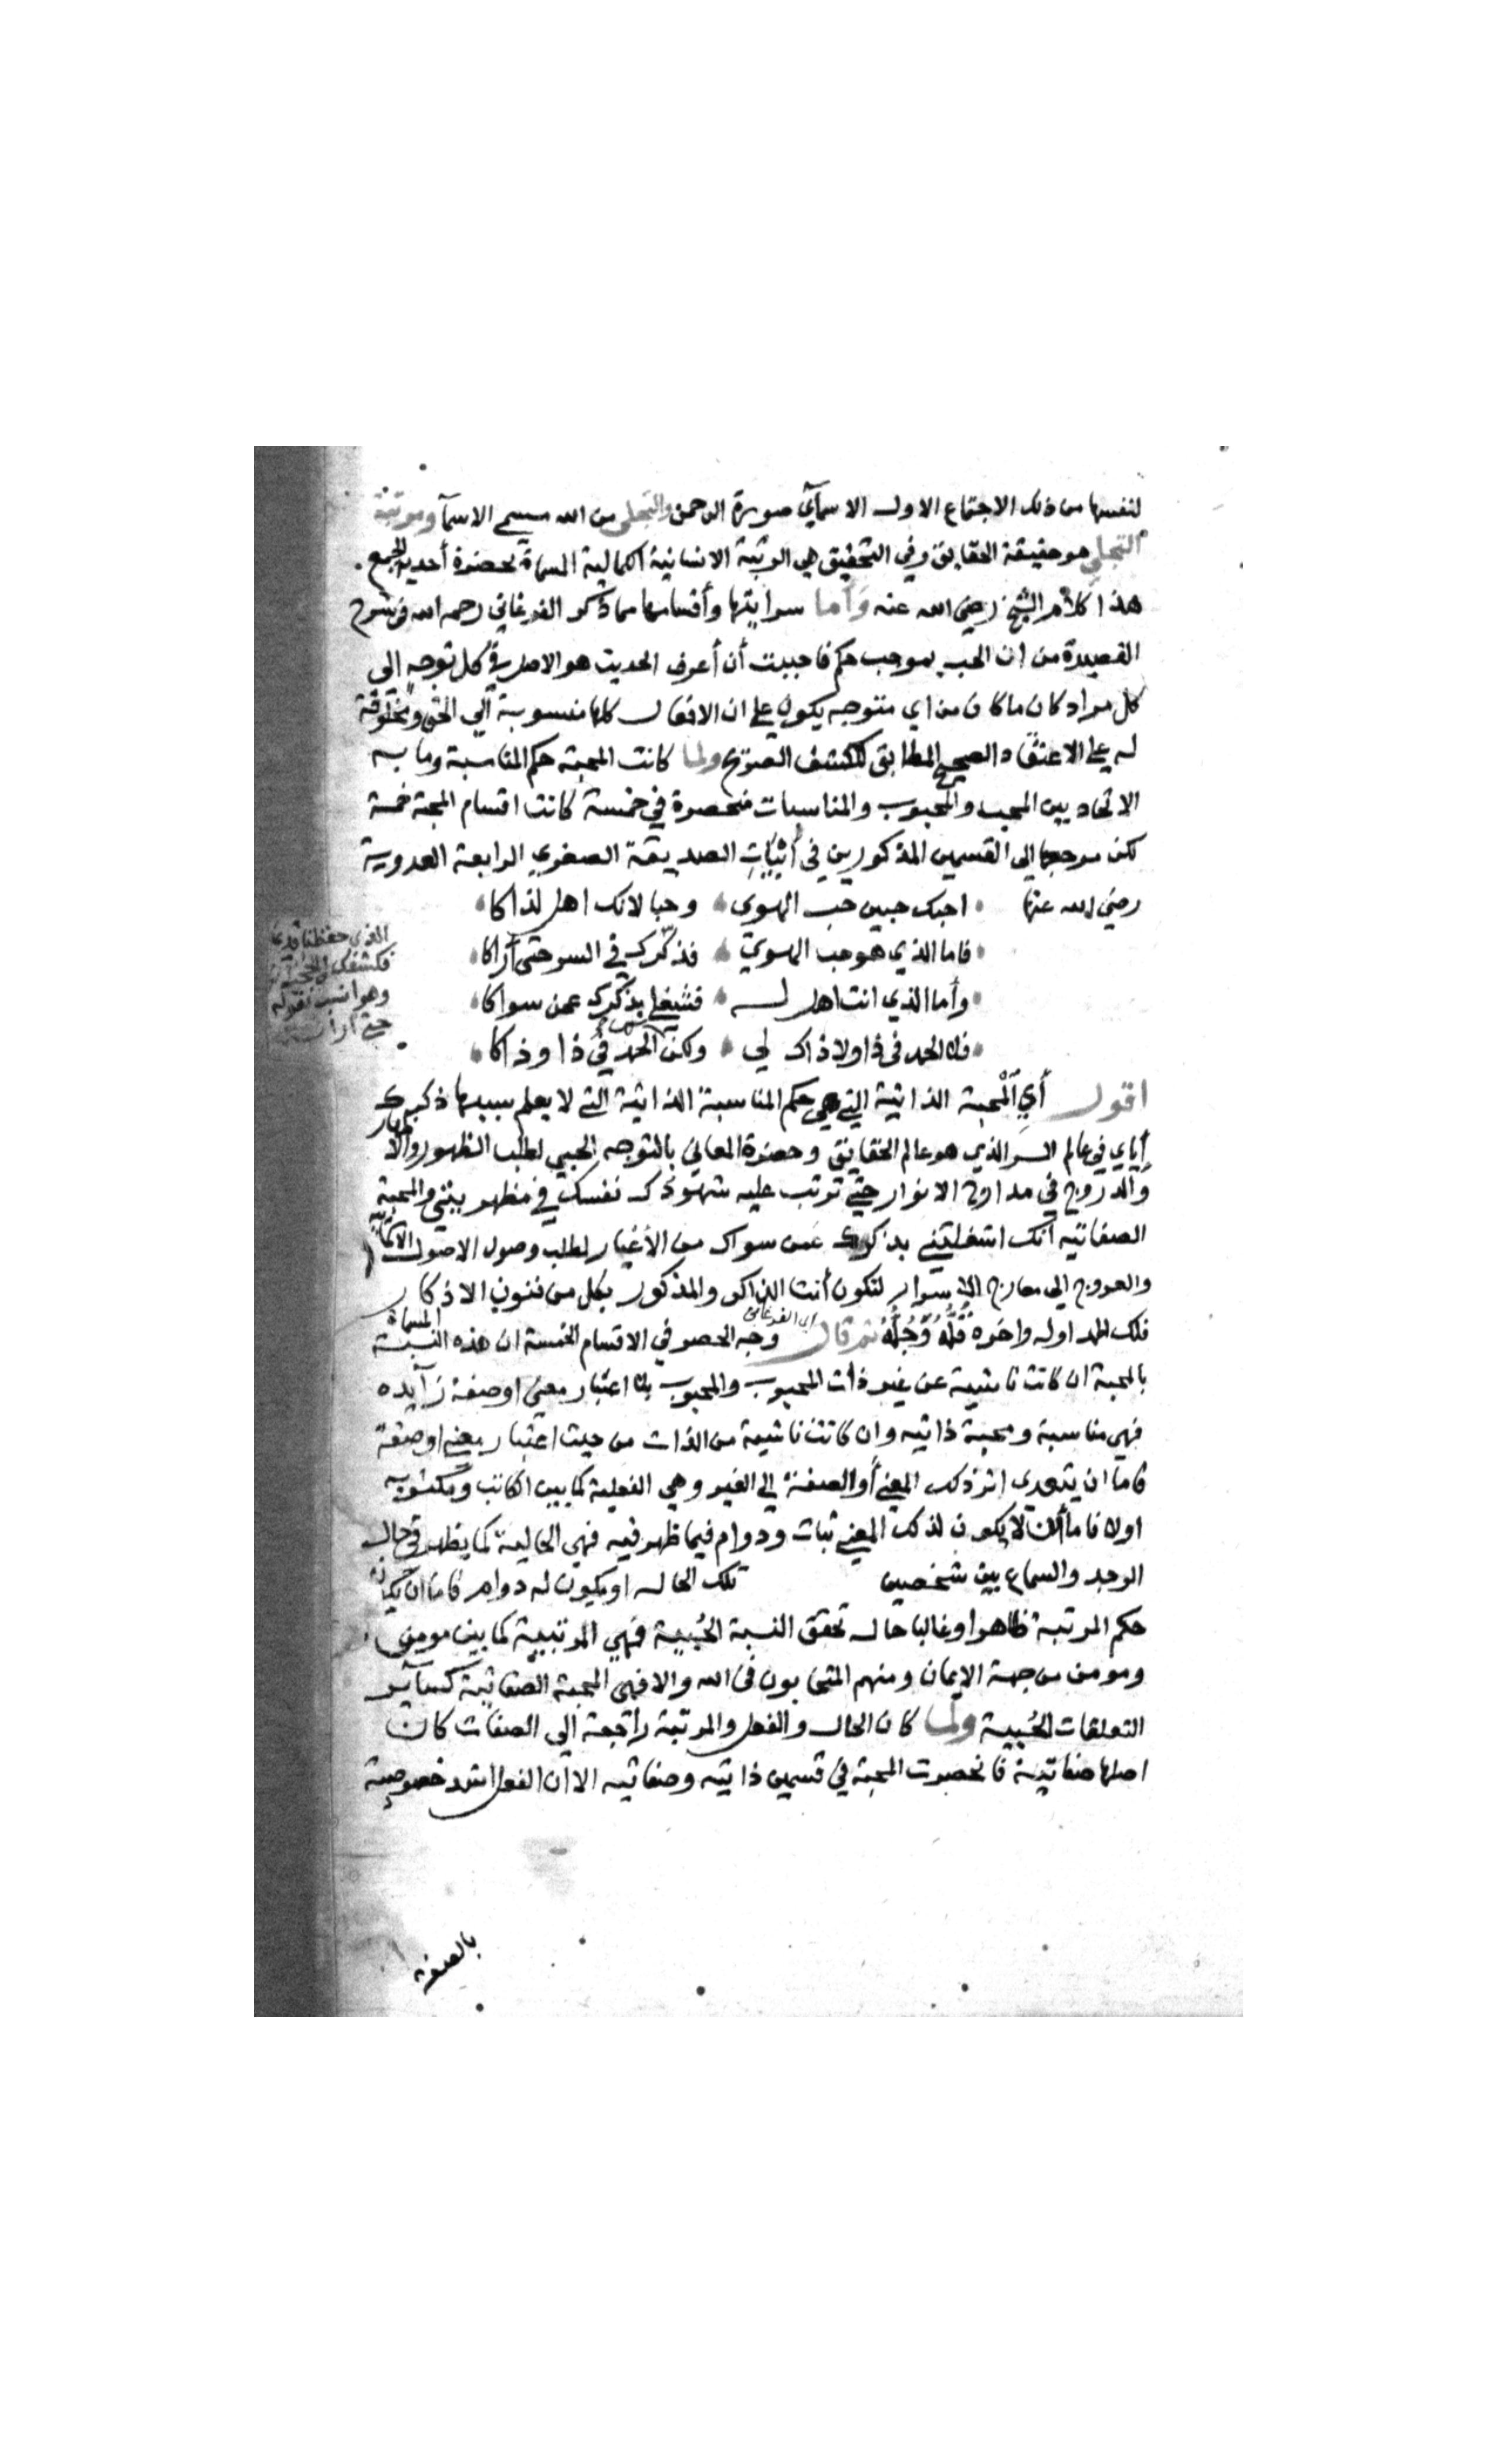 لنفسها من ذلك الاجتماع الاول الاسمآي صورة الرحمن والتجلي من الله مسمى الاسمآ ومرتبة
التجلي هو حقيقة الحقايق وفي التحقيق هي الرتبة الانسانية الكمالية المسماة بحضرة أحدية الجمع .
هذا كلام الشيخ رضي الله عنه وأما سرايتها وأقسامها مما ذكر الفرغاني رحمه الله في شرح
القصيدة من ان الحب بموجب حكم فاحببت أن أعرف الحديث هو الاصل في كل توجه الى
كل مراد كان ما كان من اي متوجه يكون على ان الافعال كلها منسوبة الي الحق ومخلوقة
له على الاعتقاد الصحيح المطابق للكشف الصريح ولما كانت المحبة حكم المناسبة وما به
الاتحاد بين المحب والمحبوب والمناسبات منحصرة في خمسة كانت اقسام المحبة خمسة
لكن مرجعها الى القسمين المذكورين في أبيات الصديقة الصغرى الرابعة العدوية
رضي الله عنها احبك حبين حب الهوى وحبا لانك اهل لذاكا
فاما الذي هو حب الهوي فذكرك في السر حتى أراكا
وأما الذي انت اهل له فشغلي بذكرك عمن سواكا
فلا الحمد في ذا ولا ذاك لي ولكن لك الحمد في ذا وذاكا
الذي حفظناه
فكشفك الحجب
وهو انسب بقوله
حتى اراك
اقول أي المحبة الذاتية التي هي حكم المناسبة الذاتية التي لا يعلم سببها ذكرك
إياي في عالم السر الذي هو عالم الحقايق وحضرة المعاني بالتوجه الحبي لطلب الظهور والاظهار
والدروج في مدارج الانوار حتى ترتب عليه شهودك نفسك في مظهر بيتي والمحبة
الصفاتيه انك اشغلتني بذكرك عمن سواك من الأغيار لطلب وصول الاصول
والعروج الى معارج الاسرار لتكون أنت الذاكر والمذكور بكل من فنون الاذكار
فلك الحمد اوله واخره قُلّه وجُلّه ثم قال اي الفرغاني وجه الحصر في الاقسام الخمسة ان هذه النسبة المسماة
بالمحبة ان كانت ناشية عن غير ذات المحبوب والمحبوب بلا اعتبار معنى او صفة زآيده
فهي مناسبة ومحبة ذاتيه وان كانت ناشية من الذات من حيث اعتبار معنى او صفة
فاما ان يتعدى اثر ذلك المعنى أو الصفة الى الغير وهي الفعلية كما بين الكاتب ومكتوبه
اولا فاما أن لا يكون لذلك المعنى ثبات ودوام فيما ظهر فيه فهي الحالية كما يظهر في حال
الوجد والسماع بين شخصين تلك الحاله او يكون له دوام فاما ان يكون
حكم المرتبة ظاهرا وغالبا حاله تحقق النسبة الحُبية فهي المرتبية كما بين مومن
ومومن من جهة الايمان ومنهم المتحابون في الله والا فهي المحبة الصفاتية كسآير
التعلقات الحُبية ولما كان الحال والفعل والمرتبة راجعة الى الصفات كان
اصلها صفاتية فانحصرت المحبة في قسمين ذاتيه وصفاتيه الا ان الفعل اشد خصوصية
بالصفة